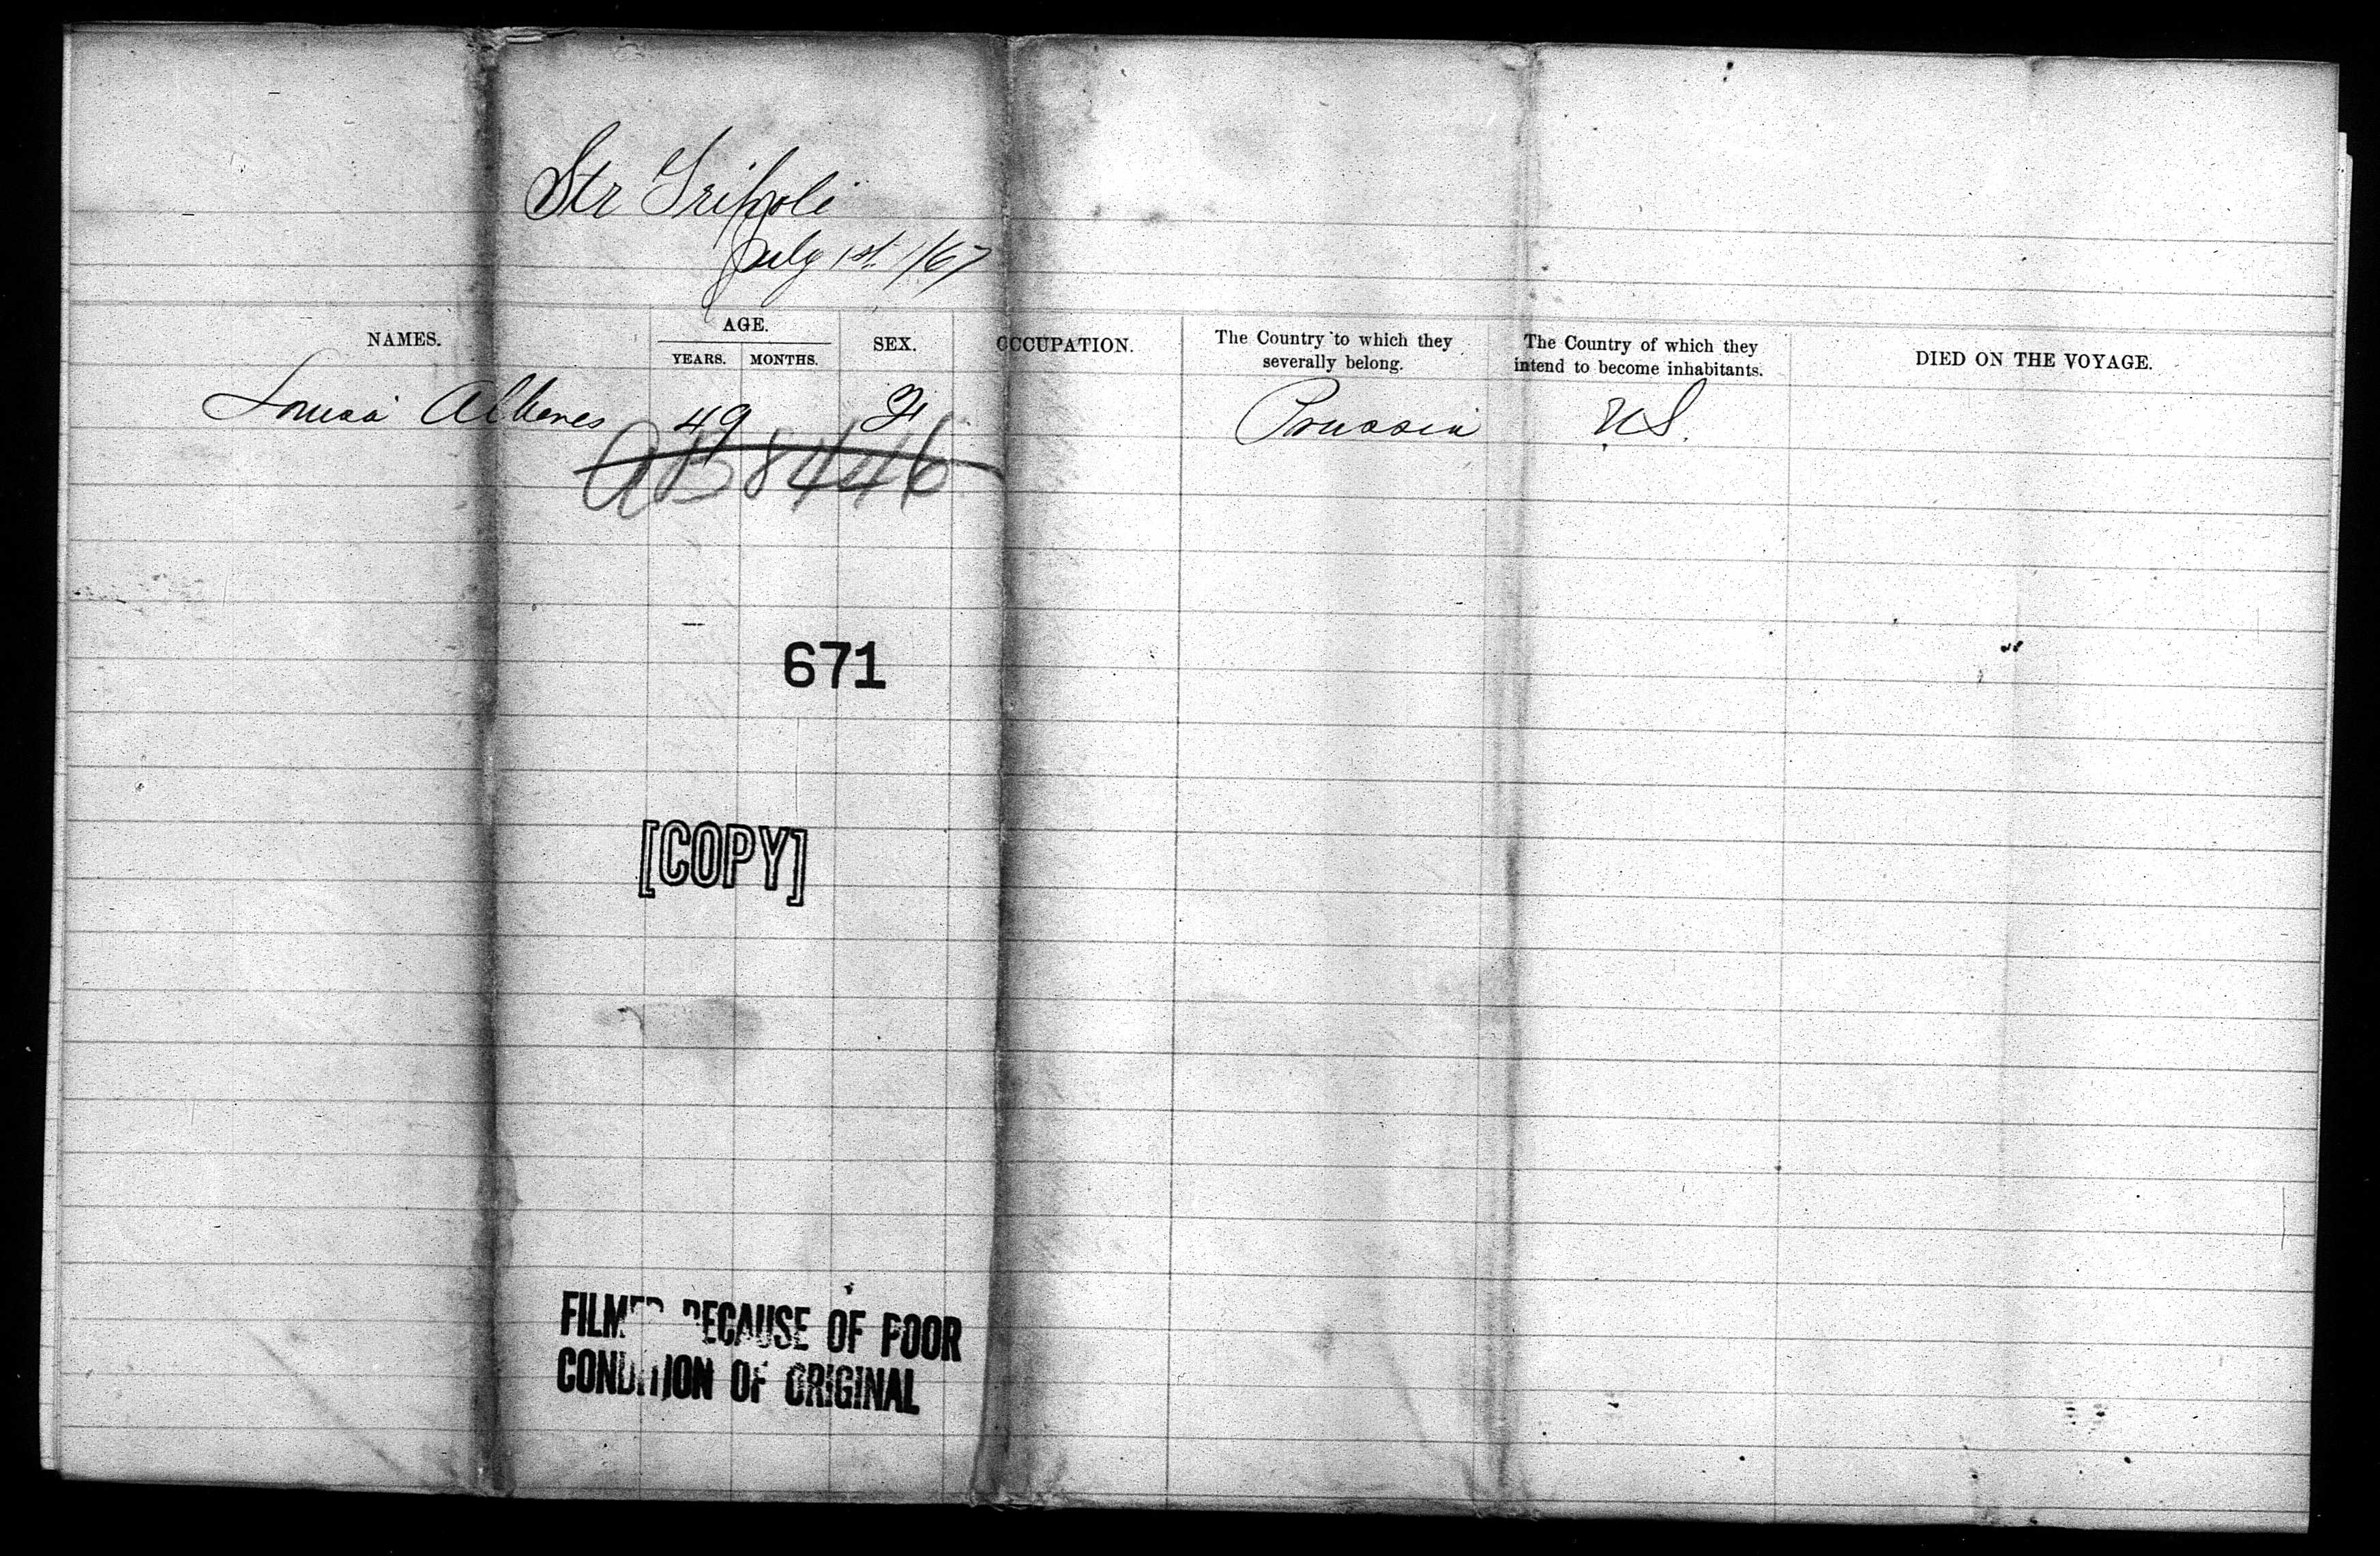 Str Tripoli
July 1st /67
NAMES. AGE. YEARS. MONTHS. SEX. OCCUPATION. The Country to which they severally belong. The Country of which they intend to become inhabitants. DIED ON THE VOYAGE.
Louisa 49 F Prussia US.
AB 8446
671
[COPY]
FILMED BECAUSE OF POOR
CONDITION OF ORIGINAL